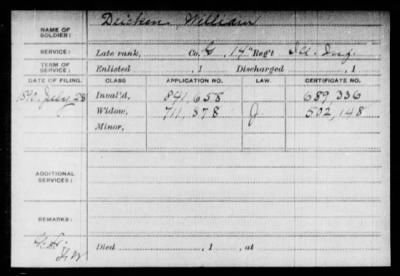 NAME OF SOLDIER: Dueken, William
SERVICE: Late rank, Co. G, 17" Reg't Ill. Inf.
TERM OF SERVICE: Enlisted , 1 Discharged , 1
DATE OF FILING. CLASS APPLICATION NO. LAW. CERTIFICATE NO.
1890, July 28 Inval'd, 841,658 689,336
Widow, 711,878 J 502,148
Minor,
ADDITIONAL SERVICES:
REMARKS:
Died , 1 , at